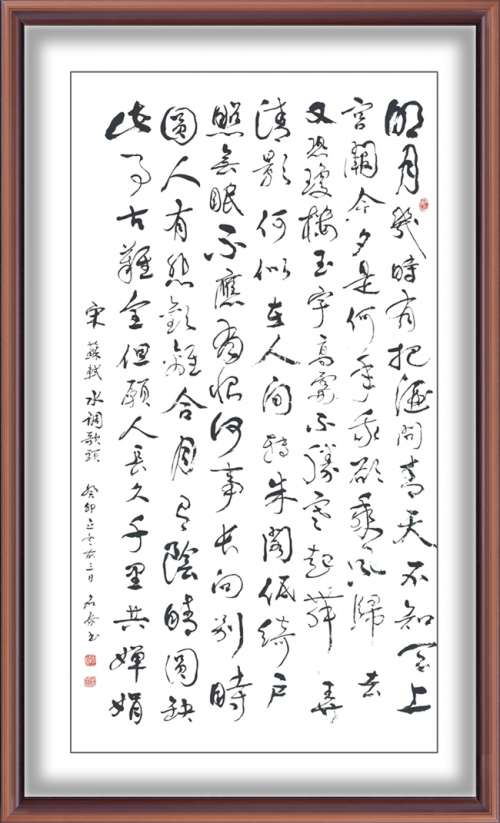 明月幾時有把酒問青天不知天上
宮闕今夕是何年我欲乘風歸去
又恐瓊樓玉宇高處不勝寒起舞弄
清影何似在人間轉朱閣低綺戶
照無眠不應有恨何事長向別時
圓人有悲歡離合月有陰晴圓缺
此事古難全但願人長久千里共嬋娟
宋 蘇軾 水调歌頭 癸卯立冬前三日 書